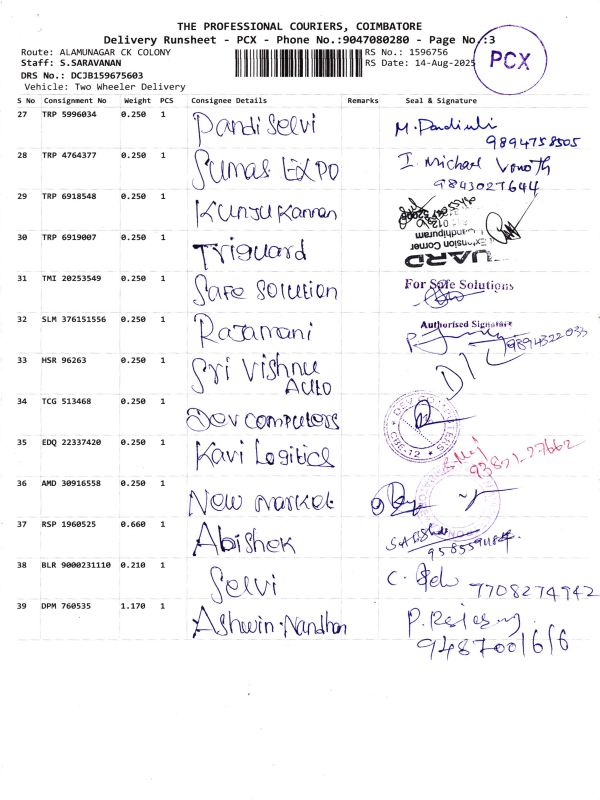 THE PROFESSIONAL COURIERS, COIMBATORE
Delivery Runsheet - PCX - Phone No.:9047080280 - Page No.:3
Route: ALAMUNAGAR CK COLONY
RS No.: 1596756
Staff: S.SARAVANAN
RS Date: 14-Aug-2025
PCX
DRS No.: DCJB159675603
Vehicle: Two Wheeler Delivery
S No Consignment No Weight PCS Consignee Details Remarks Seal & Signature
27 TRP 5996034 0.250 1 Pandi Selvi
9894758505
28 TRP 4764377 0.250 1 Sumas EXPO I. Michael
9843027644
29 TRP 6918548 0.250 1 Kunju Kannan
30 TRP 6919007 0.250 1 Triguard
Extension Corner
31 TMI 20253549 0.250 1 Safe Solution For Safe Solutions
32 SLM 376151556 0.250 1 Rajamani Authorised Signature
9894322033
33 HSR 96263 0.250 1 Sri Vishnu Auto
34 TCG 513468 0.250 1 Dev computers CBE-12
35 EDQ 22337420 0.250 1 Kavi Logitics
36 AMD 30916558 0.250 1 New Market
37 RSP 1960525 0.660 1 Abishek
38 BLR 9000231110 0.210 1 Selvi C. 7708274942
39 DPM 760535 1.170 1 Ashwin.Nandhan P.
9487001616